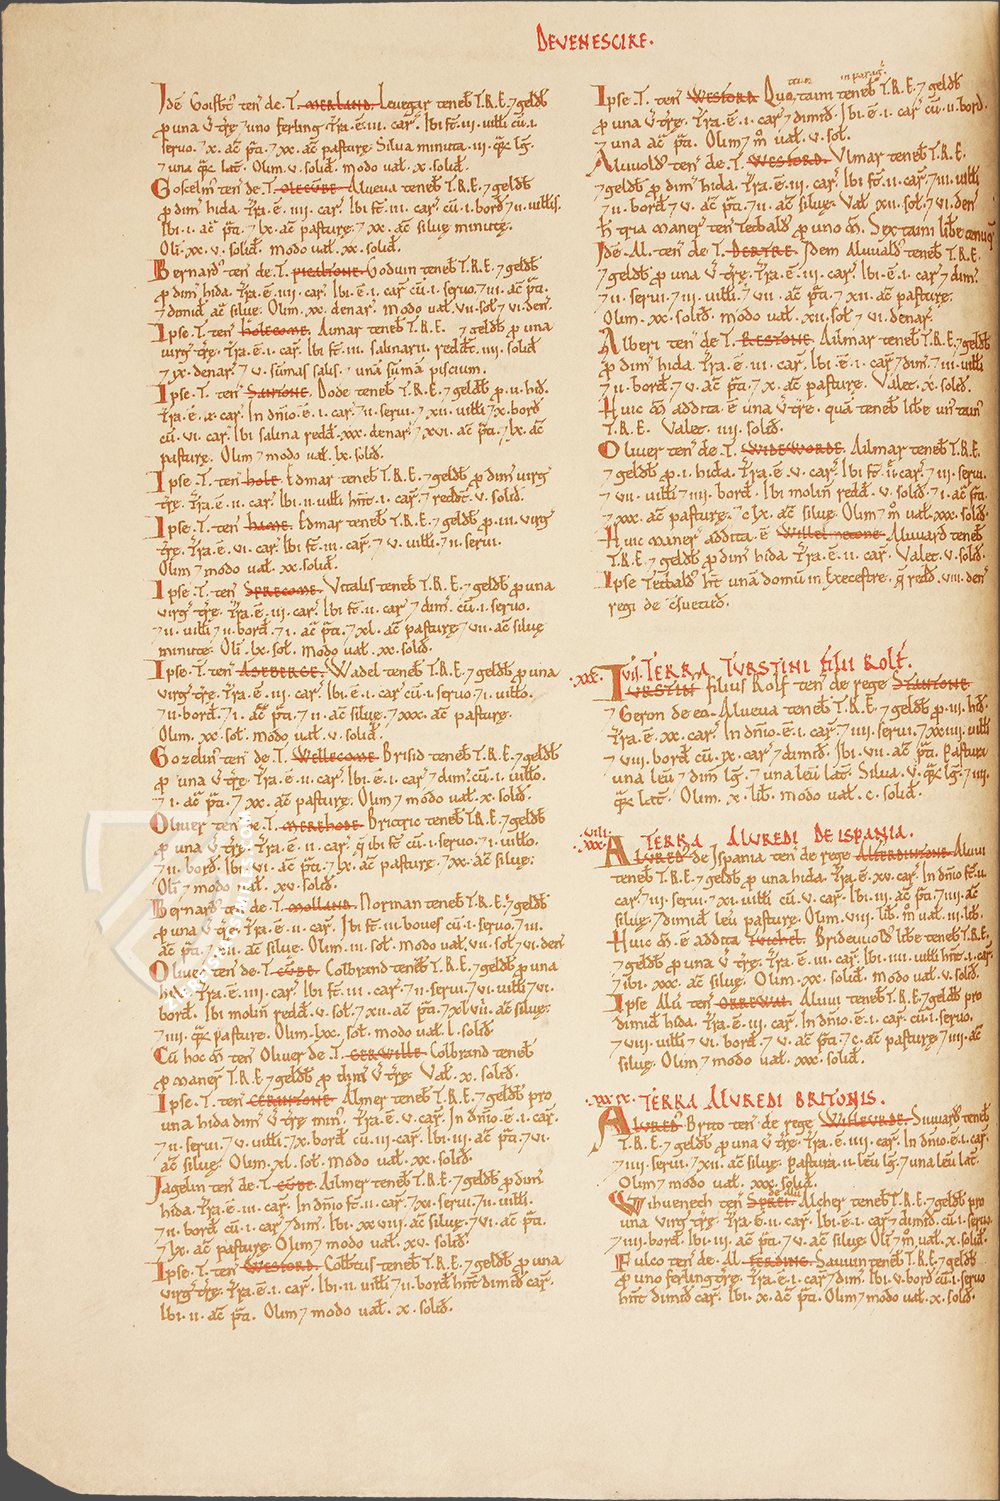 DEVENESCIRE.
Idē Goisbt̄ ten̄ de.T. MERLAND. Leuegar teneb̄ T.R.E.⁊ geldb̄
ꝓ una v̄ tr̄ę ⁊ uno ferling. Tr̄a.ē.iii. car̄. Ibi st̄.iii. uilłi cū.i.
seruo.⁊ x. ac̄ p̄ti.⁊ xx. ac̄ pasturę. Silua minuta.iii. qr̄z lḡ.
⁊ una qr̄z lat̄. Olim.v. solid̄. modo uał.x. solid̄.
Goscelm̄ ten̄ de.T. OLECVBE. Alueua teneb̄ T.R.E.⁊ geldb̄
ꝓ dim̄ hida. Tr̄a.ē.iiii. car̄. Ibi st̄.iii. car̄ cū.i. bord̄ ⁊ .vi. uilłis.
Ibi.i. ac̄ p̄ti.⁊ lx. ac̄ pasturę.⁊ xx. ac̄ siluę minutę.
Oli.xx.v. solid̄. Modo uał.xx. solid̄.
Bernard̄ ten̄ de.T. PICALTONE. Goduin teneb̄ T.R.E.⁊ geldb̄
ꝓ dim̄ hida. Tr̄a.ē.iiii. car̄. Ibi.ē.i. car̄ cū.i. seruo.⁊ iii. ac̄ p̄ti.
⁊ dimid̄ ac̄ siluę. Olim.xx. denar̄. Modo uał.vii. soł ⁊ vi. den̄.
Ipse.T. ten̄ HOLECOME. Aimar teneb̄ T.R.E. ⁊ geldb̄ ꝓ una
uirg̃ tr̄ę. Tr̄a.ē.i. car̄. Ibi st̄.iii. salinarii. reddt̄.iiii. solid̄
⁊ ix. denar̄.⁊ v. sūmas salis.⁊ unā sūmā piscium.
Ipse.T. ten̄ SANTONE. Dode teneb̄ T.R.E.⁊ geldb̄ ꝓ.ii. hid̄.
Tr̄a.ē.x. car̄. In dn̄io.ē.i. car̄.⁊ ii. serui.⁊ xii. uilłi ⁊ x. bord̄
cū.vi. car̄. Ibi salina redd̄.xxx. denar̄.⁊ xvi. ac̄ p̄ti.⁊ lx. ac̄
pasturę. Olim ⁊ modo uał.lx. solid̄.
Ipse.T. ten̄ HOLE. Edmar teneb̄ T.R.E.⁊ geldb̄ ꝓ dim̄ uirg̃
tr̄ę. Tr̄a.ē.ii. car̄. Ibi.ii. uilłi hn̄t.i. car̄.⁊ reddt̄.v. solid̄.
Ipse.T. ten̄ HAME. Edmar teneb̄ T.R.E.⁊ geldb̄ ꝓ.iii. uirg̃
tr̄ę. Tr̄a.ē.vi. car̄. Ibi st̄.iii. car̄.⁊ v. uilłi.⁊ ii. serui.
Olim ⁊ modo uał.xx. solid̄.
Ipse.T. ten̄ SPRECOME. Vitalis teneb̄ T.R.E.⁊ geldb̄ ꝓ una
uirg̃ tr̄ę. Tr̄a.ē.iii. car̄. Ibi st̄.ii. car̄ ⁊ dim̄. cū.i. seruo.
⁊ ii. uilłi ⁊ ii. bord̄.⁊ i. ac̄ p̄ti.⁊ xl. ac̄ pasturę ⁊ vii. ac̄ siluę
minutę. Oli.lx. soł. Modo uał.xx. solid̄.
Ipse.T. ten̄ ASEBERGE. Wadel teneb̄ T.R.E.⁊ geldb̄ ꝓ una
uirg̃ tr̄ę. Tr̄a.ē.iii. car̄. Ibi.ē.i. car̄ cū.i. seruo.⁊ ii. uilło.
⁊ ii. bord̄.⁊ i. ac̄ p̄ti.⁊ ii. ac̄ siluę.⁊ xxx. ac̄ pasturę.
Olim.xx. soł. modo uał.v. solid̄.
Gozelin̄ ten̄ de.T. WELLECOME. Brisid teneb̄ T.R.E.⁊ geldb̄
ꝓ una v̄ tr̄ę. Tr̄a.ē.ii. car̄. Ibi.ē.i. car̄ ⁊ dim̄. cū.i. uilło.
⁊ i. ac̄ p̄ti.⁊ xx. ac̄ pasturę. Olim ⁊ modo uał.x. solid̄.
Oliuer ten̄ de.T. MEREHODE. Brictric teneb̄ T.R.E.⁊ geldb̄
ꝓ una v̄ tr̄ę. Tr̄a.ē.ii. car̄. q̄ ibi st̄ cū.i. seruo.⁊ i. uilło.
⁊ ii. bord̄. Ibi.vi. ac̄ p̄ti.⁊ lx. ac̄ pasturę.⁊ xx. ac̄ siluę.
Oli ⁊ modo uał.xv. solid̄.
Bernard̄ ten̄ de.T. MOLLAND. Norman teneb̄ T.R.E.⁊ geldb̄
ꝓ una v̄ tr̄ę. Tr̄a.ē.ii. car̄. Ibi st̄.iii. boues cū.i. seruo.⁊ iii.
ac̄ p̄ti.⁊ ii. ac̄ siluę. Olim.iii. soł. modo uał.vii. soł ⁊ vi. den̄
Oliuer ten̄ de.T. CVBE. Colbrand teneb̄ T.R.E.⁊ geldb̄ ꝓ una
hida. Tr̄a.ē.iiii. car̄. Ibi st̄.iii. car̄.⁊ ii. serui.⁊ vi. uilłi ⁊ vi.
bord̄. Ibi molin̄ redd̄.v. soł.⁊ xii. ac̄ p̄ti.⁊ xl.vii. ac̄ siluę.
⁊ iiii. qr̄z pasturę. Olim.lxx. soł. modo uał.l. solid̄
Cū hoc m̄ ten̄ Oliuer de.T. GERWILLE. Colbrand teneb̄
ꝓ maner̄ T.R.E.⁊ geldb̄ ꝓ dim̄ v̄ tr̄ę. Vał.x. solid̄.
Ipse.T. ten̄ CERINTONE. Almer teneb̄ T.R.E.⁊ geldb̄ pro
una hida dim̄ v̄ tr̄ę min̄. Tr̄a.ē.v. car̄. In dn̄io.ē.i. car̄.
⁊ ii. serui.⁊ v. uilłi ⁊ x. bord̄ cū.iii. car̄. Ibi.iii. ac̄ p̄ti.⁊ vi.
ac̄ siluę. Olim.xl. soł. modo uał.xx. solid̄.
Jagelin̄ ten̄ de.T. CVBE. Ailmer teneb̄ T.R.E.⁊ geldb̄ ꝓ dim̄
hida. Tr̄a.ē.iii. car̄. In dn̄io st̄.ii. car̄.⁊ xi. serui.⁊ ii. uilłi.
⁊ ii. bord̄ cū.i. car̄ ⁊ dim̄. Ibi.xxviii. ac̄ siluę.⁊ vi. ac̄ p̄ti.
⁊ lx. ac̄ pasturę. Olim ⁊ modo uał.xv. solid̄.
Ipse.T. ten̄ WESFORD. teneb̄ T.R.E.⁊ geldb̄ ꝓ una
uirg̃ tr̄ę. Tr̄a.ē.i. car̄. Ibi.ii. uilłi ⁊ ii. bord̄ hn̄t dimid̄ car̄.
Ibi.ii. ac̄ p̄ti. Olim ⁊ modo uał.x. solid̄.
Ipse.T. ten̄ WESFORD. Quattuor taini teneb̄ in parag̃. T.R.E.⁊ geldb̄
ꝓ una v̄ tr̄ę. Tr̄a.ē.i. car̄ ⁊ dimid̄. Ibi.ē.i. car̄ cū.ii. bord̄.
⁊ una ac̄ p̄ti. Olim ⁊ m̊ uał.v. soł.
Aluuold̄ ten̄ de.T. WESFORD. Vlmar teneb̄ T.R.E.
⁊ geldb̄ ꝓ dim̄ hida. Tr̄a.ē.iii. car̄. Ibi st̄.ii. car̄.⁊ iii. uilłi
⁊ ii. bord̄.⁊ v. ac̄ p̄ti.⁊ ii. ac̄ siluę. Vał.xii. soł.⁊ vi. den̄
H̄ tria maner̄ ten̄ Tetbald̄ ꝓ uno m̄. Sex taini libe tenuer̄
Idē.Al. ten̄ de.T. DERTRE. Idem Aluuald̄ teneb̄ T.R.E.
⁊ geldb̄ ꝓ una v̄ tr̄ę. Tr̄a.ē.iii. car̄. Ibi.ē.i. car̄ ⁊ dim̄.
⁊ ii. serui.⁊ iii. uilłi.⁊ vii. ac̄ p̄ti.⁊ xii. ac̄ pasturę.
Olim.xx. solid̄. modo uał.xii. soł ⁊ vi. denar̄.
Alberi ten̄ de.T. RISTONE. Ailmar teneb̄ T.R.E.⁊ geldb̄
ꝓ dim̄ hida. Tr̄a.ē.iii. car̄. Ibi.ē.i. car̄ ⁊ dim̄.⁊ iii. uilłi
⁊ ii. bord̄.⁊ v. ac̄ p̄ti.⁊ x. ac̄ pasturę. Valet.x. solid̄.
Huic m̄ addita ē una v̄ tr̄ę. quā teneb̄ libe un̄ tain̄
T.R.E. Valet.iiii. solid̄.
Oliuer ten̄ de.T. WIDEWORDE. Ailmar teneb̄ T.R.E.
⁊ geldb̄ ꝓ.i. hida. Tr̄a.ē.v. car̄. Ibi st̄.ii. car̄.⁊ iii. serui.
⁊ vii. uilłi ⁊ iiii. bord̄. Ibi molin̄ redd̄.v. solid̄.⁊ i. ac̄ p̄ti.
⁊ xxx. ac̄ pasturę.⁊ clx. ac̄ siluę. Olim ⁊ m̊ uał.xxx. solid̄.
Huic maner̄ addita ē WILLELMETONE. Aluuard teneb̄
T.R.E.⁊ geldb̄ ꝓ dim̄ hida. Tr̄a.ē.ii. car̄. Valet.v. solid̄.
Ipse Tetbald̄ ht̄ unā domū in Execestre. q̄ redd̄.viii. den̄
regi de c̄suetud̄.
.XXX. VII. TERRA TVRSTINI FILII ROLF.
TVRSTIN filius Rolf ten̄ de rege STANTONE.
⁊ Geron de eo. Alueua teneb̄ T.R.E.⁊ geldb̄ ꝓ.iii. hid̄.
Tr̄a.ē.xx. car̄. In dn̄io.ē.i. car̄.⁊ iiii. serui.⁊ xxiiii. uilłi
⁊ viii. bord̄ cū.ix. car̄ ⁊ dimid̄. Ibi.vii. ac̄ p̄ti. Pastura
una leu̅ ⁊ dim̄ lḡ.⁊ una leu̅ lat̄. Silua.v. qr̄z lḡ.⁊ iiii.
qr̄z lat̄. Olim.x. lib̄. modo uał.c. solid̄.
.XXX. VIII. TERRA ALVREDI DE ISPANIA.
ALVRED de Ispania ten̄ de rege ALFERDINTONE. Aluui
teneb̄ T.R.E.⁊ geldb̄ ꝓ una hida. Tr̄a.ē.xv. car̄. In dn̄io st̄.ii.
car̄.⁊ iii. serui.⁊ xi. uilłi cū.v. car̄. Ibi.iii. ac̄ p̄ti.⁊ iii. ac̄
siluę.⁊ dimid̄ leu̅ pasturę. Olim.viii. lib̄. m̊ uał.iii. lib̄.
Huic m̄.ē addita TVICHEL. Brideuuold̄ libe teneb̄ T.R.E.
⁊ geldb̄ ꝓ una v̄ tr̄ę. Tr̄a.ē.iii. car̄. Ibi.iiii. uilłi hn̄t.i. car̄.
⁊ ibi.xxx. ac̄ siluę. Olim.xx. solid̄. modo uał.v. solid̄.
Ipse Alū ten̄ ORREWAI. Aluui teneb̄ T.R.E.⁊ geldb̄ pro
dimid̄ hida. Tr̄a.ē.iii. car̄. In dn̄io.ē.i. car̄. cū.i. seruo.
⁊ viii. uilłi ⁊ vi. bord̄.⁊ v. ac̄ p̄ti.⁊ c. ac̄ pasturę.⁊ iiii. ac̄
siluę. Olim ⁊ modo uał.xxx. solid̄.
.XXXIX. TERRA ALVREDI BRITONIS.
ALVRED̄ Brito ten̄ de rege WILLEVRDE. Siuuard teneb̄
T.R.E.⁊ geldb̄ ꝓ una v̄ tr̄ę. Tr̄a.ē.iii. car̄. In dn̄io.ē.i. car̄.
⁊ iiii. serui.⁊ xii. ac̄ siluę. Pastura.ii. leu̅ lḡ.⁊ una leu̅ lat̄.
Olim ⁊ modo uał.xxx. solid̄.
Wihuenech ten̄ de Alū SPREI. Alcher teneb̄ T.R.E.⁊ geldb̄ pro
una uirg̃ tr̄ę. Tr̄a.ē.ii. car̄. Ibi.ē.i. car̄ ⁊ dimid̄. cū.i. seruo
⁊ iiii. bord̄. Ibi.iii. ac̄ p̄ti.⁊ v. ac̄ siluę. Oli ⁊ m̊ uał.x. solid̄.
Fulco ten̄ de.Al. FERDING. Sauuin teneb̄ T.R.E.⁊ geldb̄
ꝓ uno ferling tr̄ę. Tr̄a.ē.i. car̄ ⁊ dim̄. Ibi.v. bord̄ cū.i. seruo
hn̄t dimid̄ car̄. Ibi.x. ac̄ p̄ti. Olim ⁊ modo uał.x. solid̄.